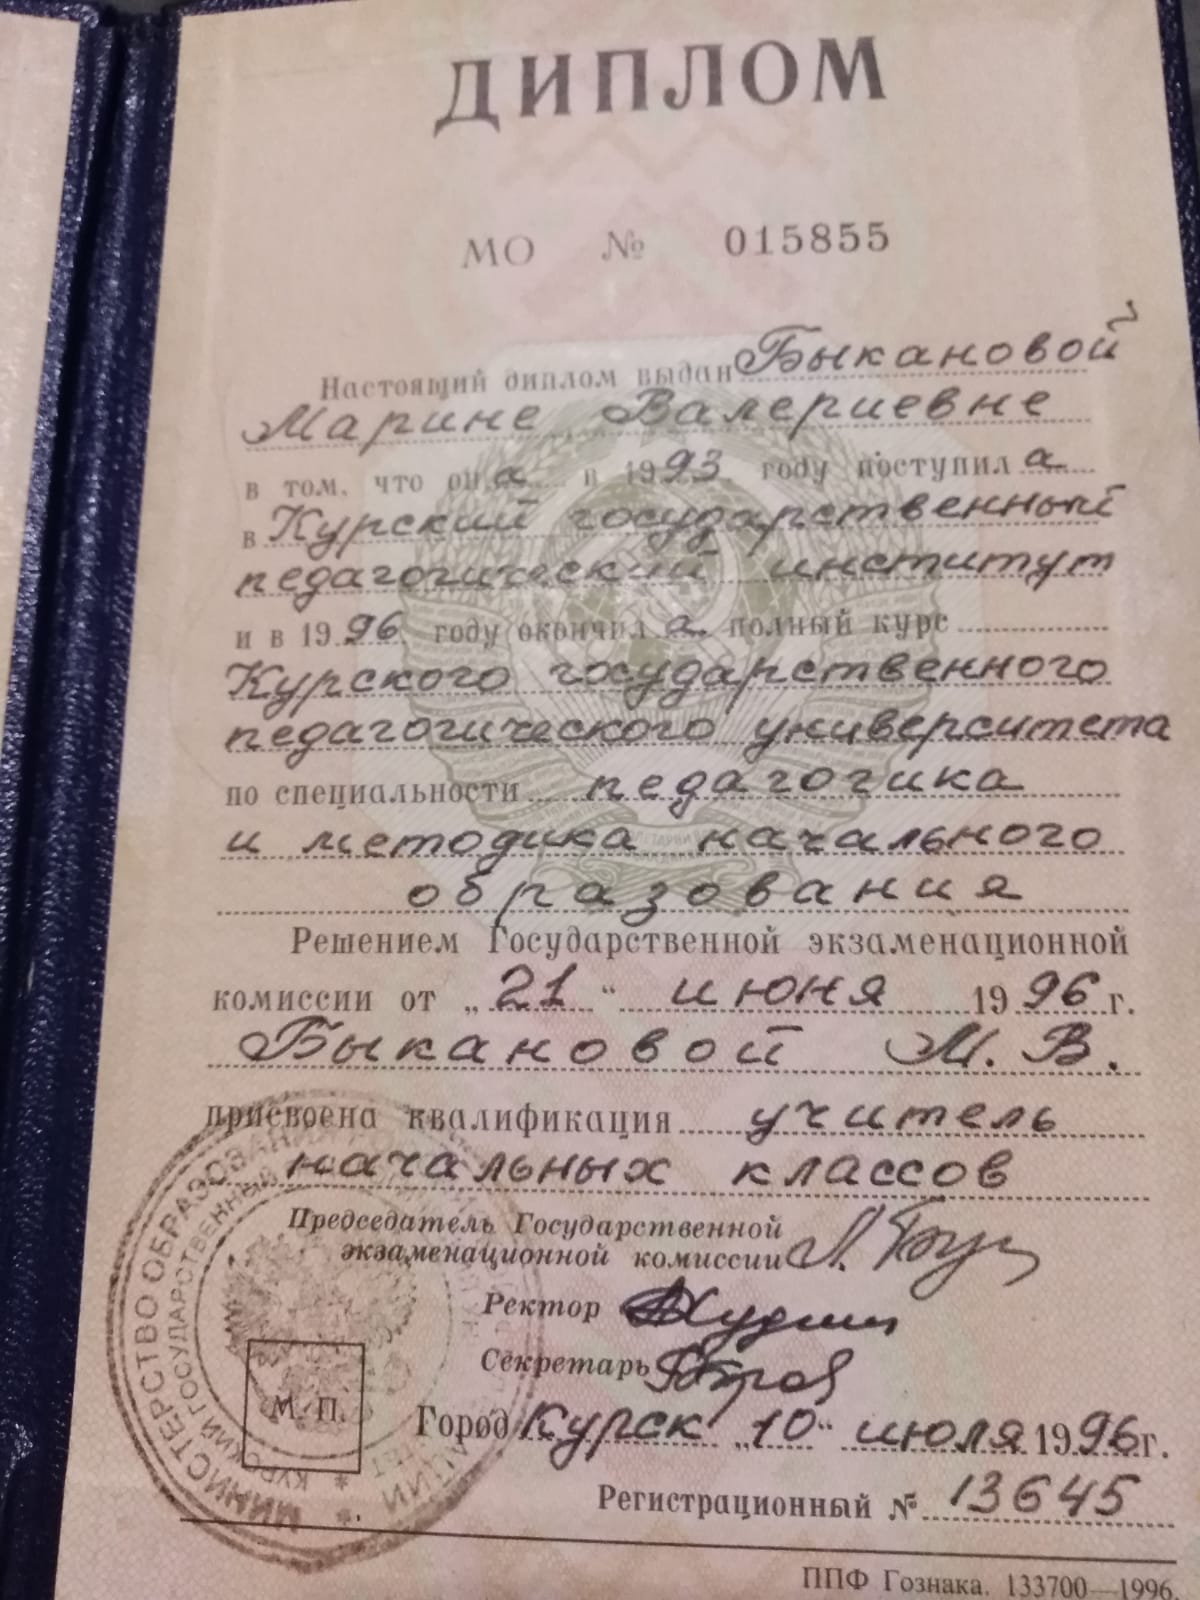 ДИПЛОМ
МО № 015855
Настоящий диплом выдан Быкановой
Марине Валериевне
в том, что она в 1993 году поступила
в Курский государственный
педагогический институт
и в 1996 году окончила полный курс
Курского государственного
педагогического университета
по специальности педагогика
и методика начального
образования
Решением Государственной экзаменационной
комиссии от „21“ июня 1996 г.
Быкановой М. В.
присвоена квалификация учитель
начальных классов
Председатель Государственной
экзаменационной комиссии
Ректор
Секретарь
Город Курск „10“ июля 1996 г.
М. П.
Регистрационный № 13645
МИНИСТЕРСТВО ОБРАЗОВАНИЯ
КУРСКИЙ ГОСУДАРСТВЕННЫЙ
ППФ Гознака. 133700—1996.